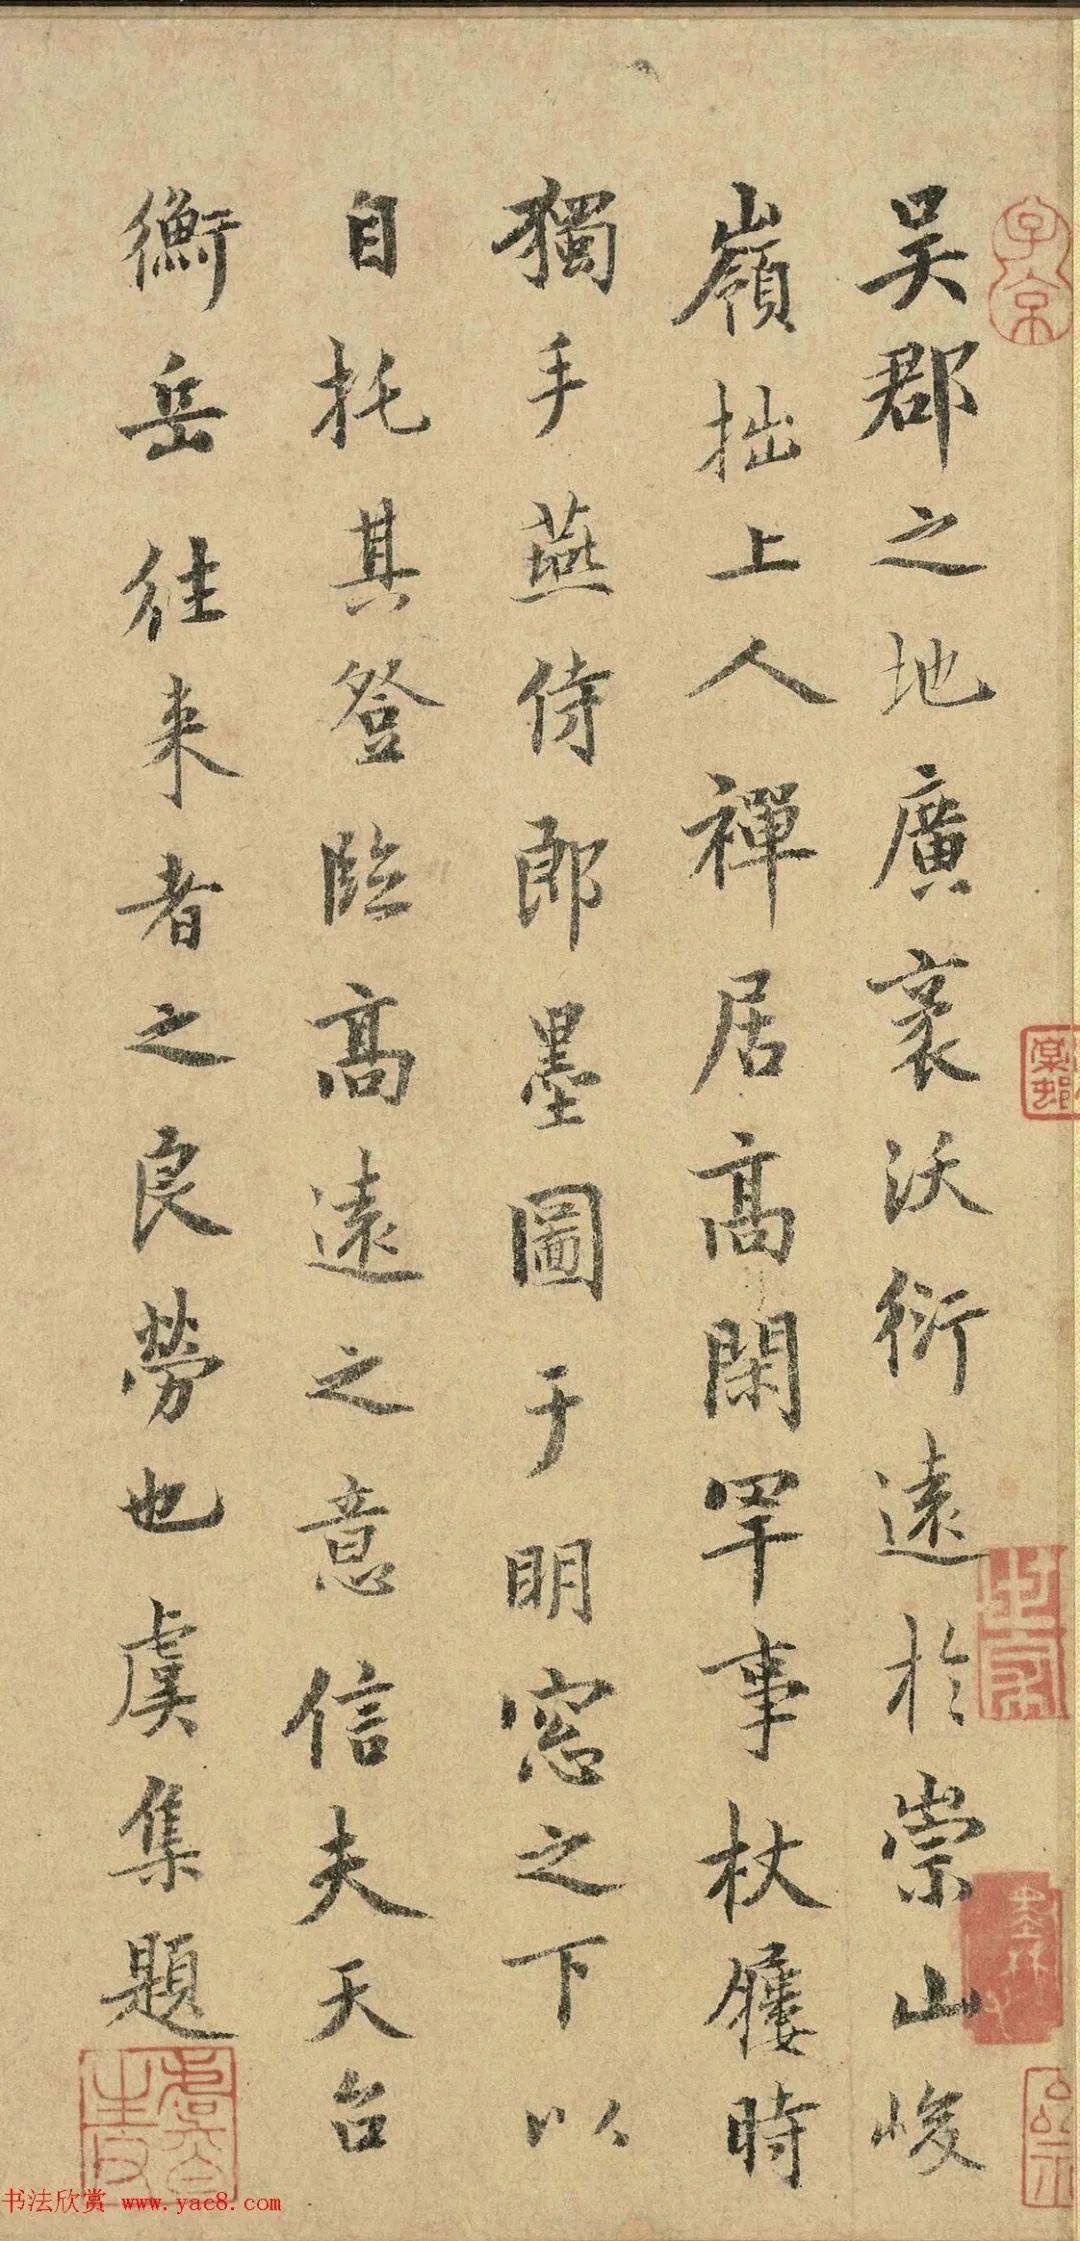 吳郡之地廣袤沃衍遠於崇山峻
嶺拙上人禪居高閑罕事杖屨時
獨手燕侍郎墨圖于明窓之下以
自托其登臨高遠之意信夫天台
衡岳往来者之良勞也虞集題
子京
墨林
书法欣赏 www.yac8.com